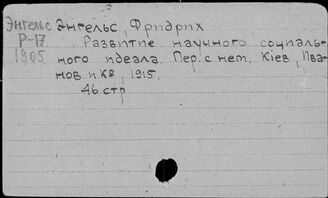 Энгельс Энгельс, Фридрих
Р-17 Развитие научного социаль-
1905 ного идеала. Пер. с нем. Кіев, Ива-
нов и К°, 1915.
46 стр